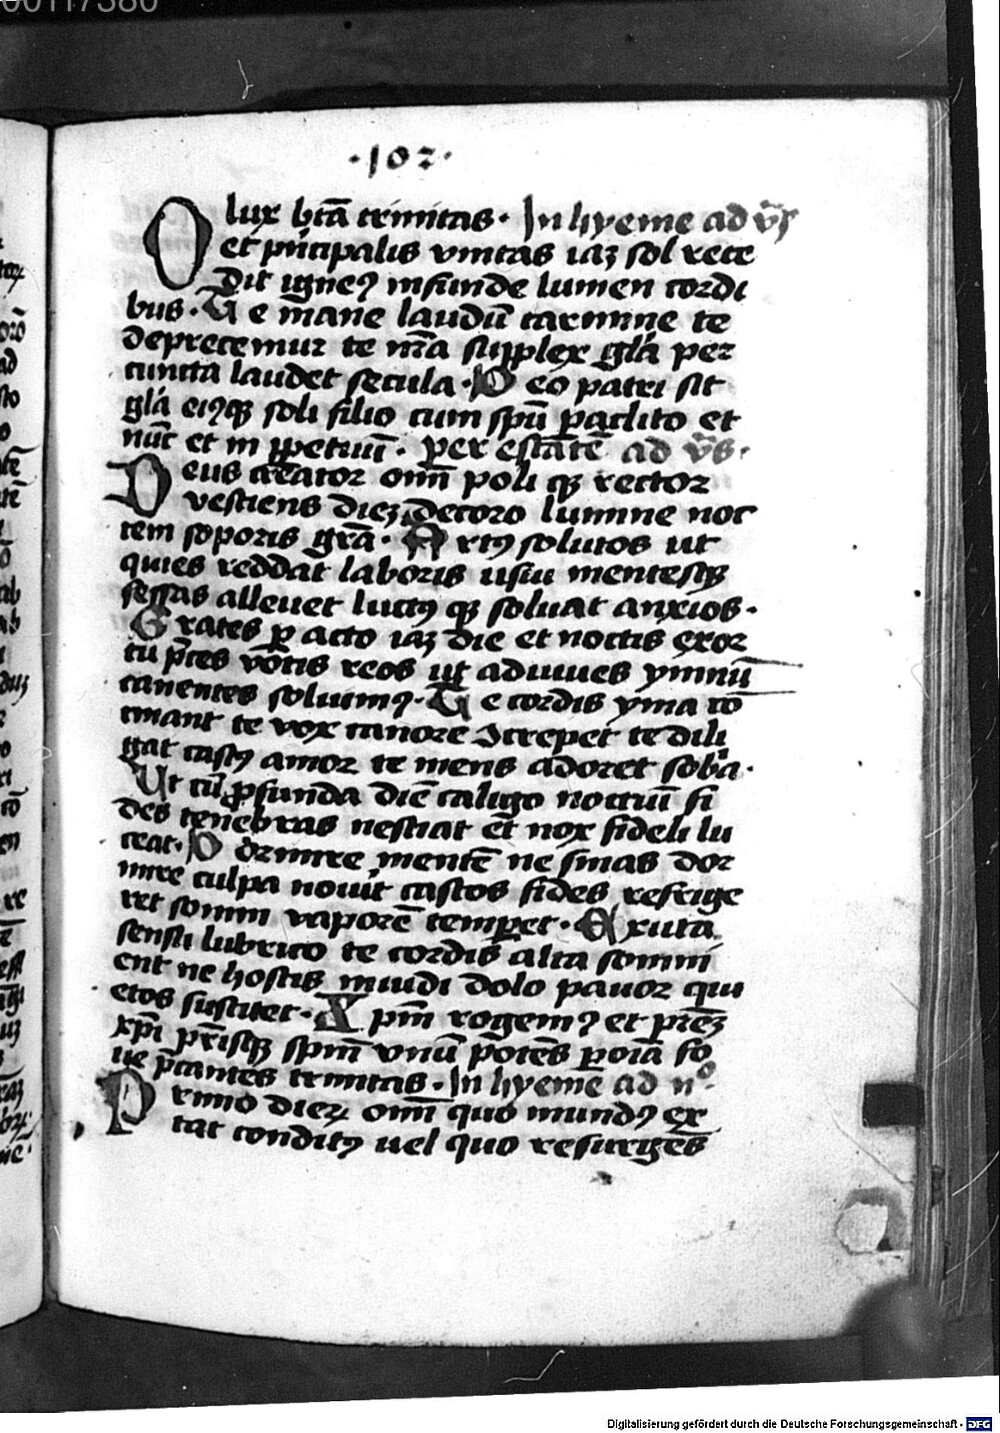 00117380
·102·
O lux bt̄a trinitas· In hyeme ad vs̄
et prīcipalis vnitas iaꝫ sol rece
dit igneꝰ infunde lumen cordi
bus· Te mane laudū carmine te
deprecemur te nr̄a supplex gl̄a per
cuncta laudet secula· Deo patri sit
gl̄a eiꝰqꝫ soli filio cum spū ꝑaclito et
nūc et in ꝑpetuū· per estatē ad vs̄·
Deus creator oīm poli qꝫ rector
vestiens dieꝫ decoro lumine noc
tem soporis gr̄a· Artꝰ solutos ut
quies reddat laboris usui mentesqꝫ
fessas alleuet luctꝰ qꝫ soluat anxios·
Grates ꝑacto iaꝫ die et noctis exor
tu p̄ces votis reos ut adiuues ymnū
canentes soluimꝰ· Te cordis yma cō
cinant te vox canore ɔcrepet te dili
gat castꝰ amor te mens adoret sobͥa·
Ut cū ꝓfunda diē caligo noctiū fi
des tenebras nesciat et nox fideli lu
ceat· Dormire mentē ne sinas dor
mire culpa nouit castos fides refrige
ret somni vaporē temꝑet· Exuta
sensu lubrico te cordis alta somni
ent ne hostis inuidi dolo pauor qui
etos suscitet· Xpm̄ rogemꝰ et pr̄eꝫ
xp̄i pr̄isqꝫ spm̄ vnū potēs ꝑ oīa fo
ue p̄cantes trinitas· In hyeme ad nº
Primo dieꝝ oīm quo mundꝰ ex
tat conditꝰ uel quo resurgēs
Digitalisierung gefördert durch die Deutsche Forschungsgemeinschaft - DFG